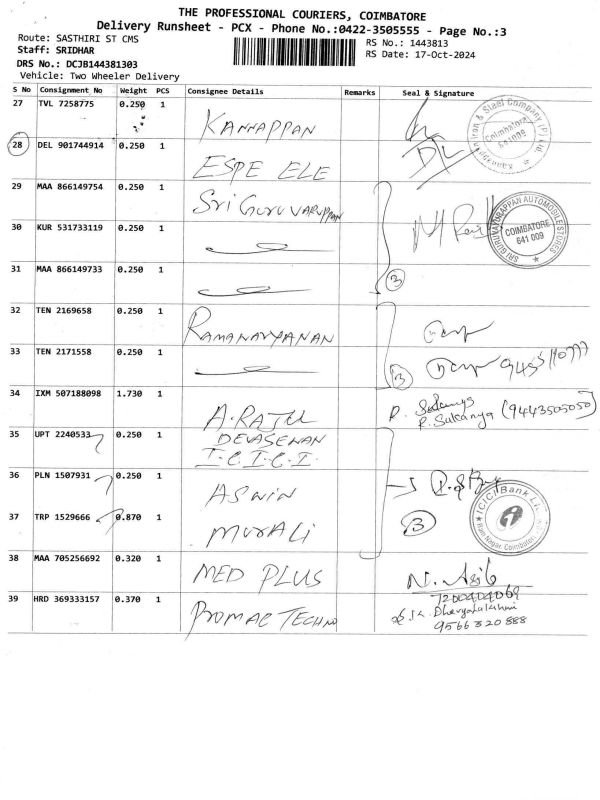 THE PROFESSIONAL COURIERS, COIMBATORE
Delivery Runsheet - PCX - Phone No.:0422-3505555 - Page No.:3
Route: SASTHIRI ST CMS
RS No.: 1443813
Staff: SRIDHAR
RS Date: 17-Oct-2024
DRS No.: DCJB144381303
Vehicle: Two Wheeler Delivery
S No Consignment No Weight PCS Consignee Details Remarks Seal & Signature
27 TVL 7258775 0.250 1 KANNAPPAN
Steel Company (P) Ltd.
Coimbatore
641009
28 DEL 901744914 0.250 1 ESPE ELE
29 MAA 866149754 0.250 1 Sri Guru VARUPPAN
SRI GURUVAYURAPPAN AUTOMOBILE STORES
COIMBATORE
641 009
30 KUR 531733119 0.250 1
31 MAA 866149733 0.250 1
3
32 TEN 2169658 0.250 1 RAMANARYANAN
33 TEN 2171558 0.250 1
3
34 IXM 507188098 1.730 1 A.RAJU
R. Sukanya
R. Sukanya (9443505050)
35 UPT 2240533 0.250 1 DEVASENAN
I.C.I.C.I.
36 PLN 1507931 0.250 1 ASWIN
ICICI Bank
Ram Nagar, Coimbatore
37 TRP 1529666 0.870 1 MURALI
3
38 MAA 705256692 0.320 1 MED PLUS
N. Asib
7200404069
39 HRD 369333157 0.370 1 PROMAC TECHNO
9566320888